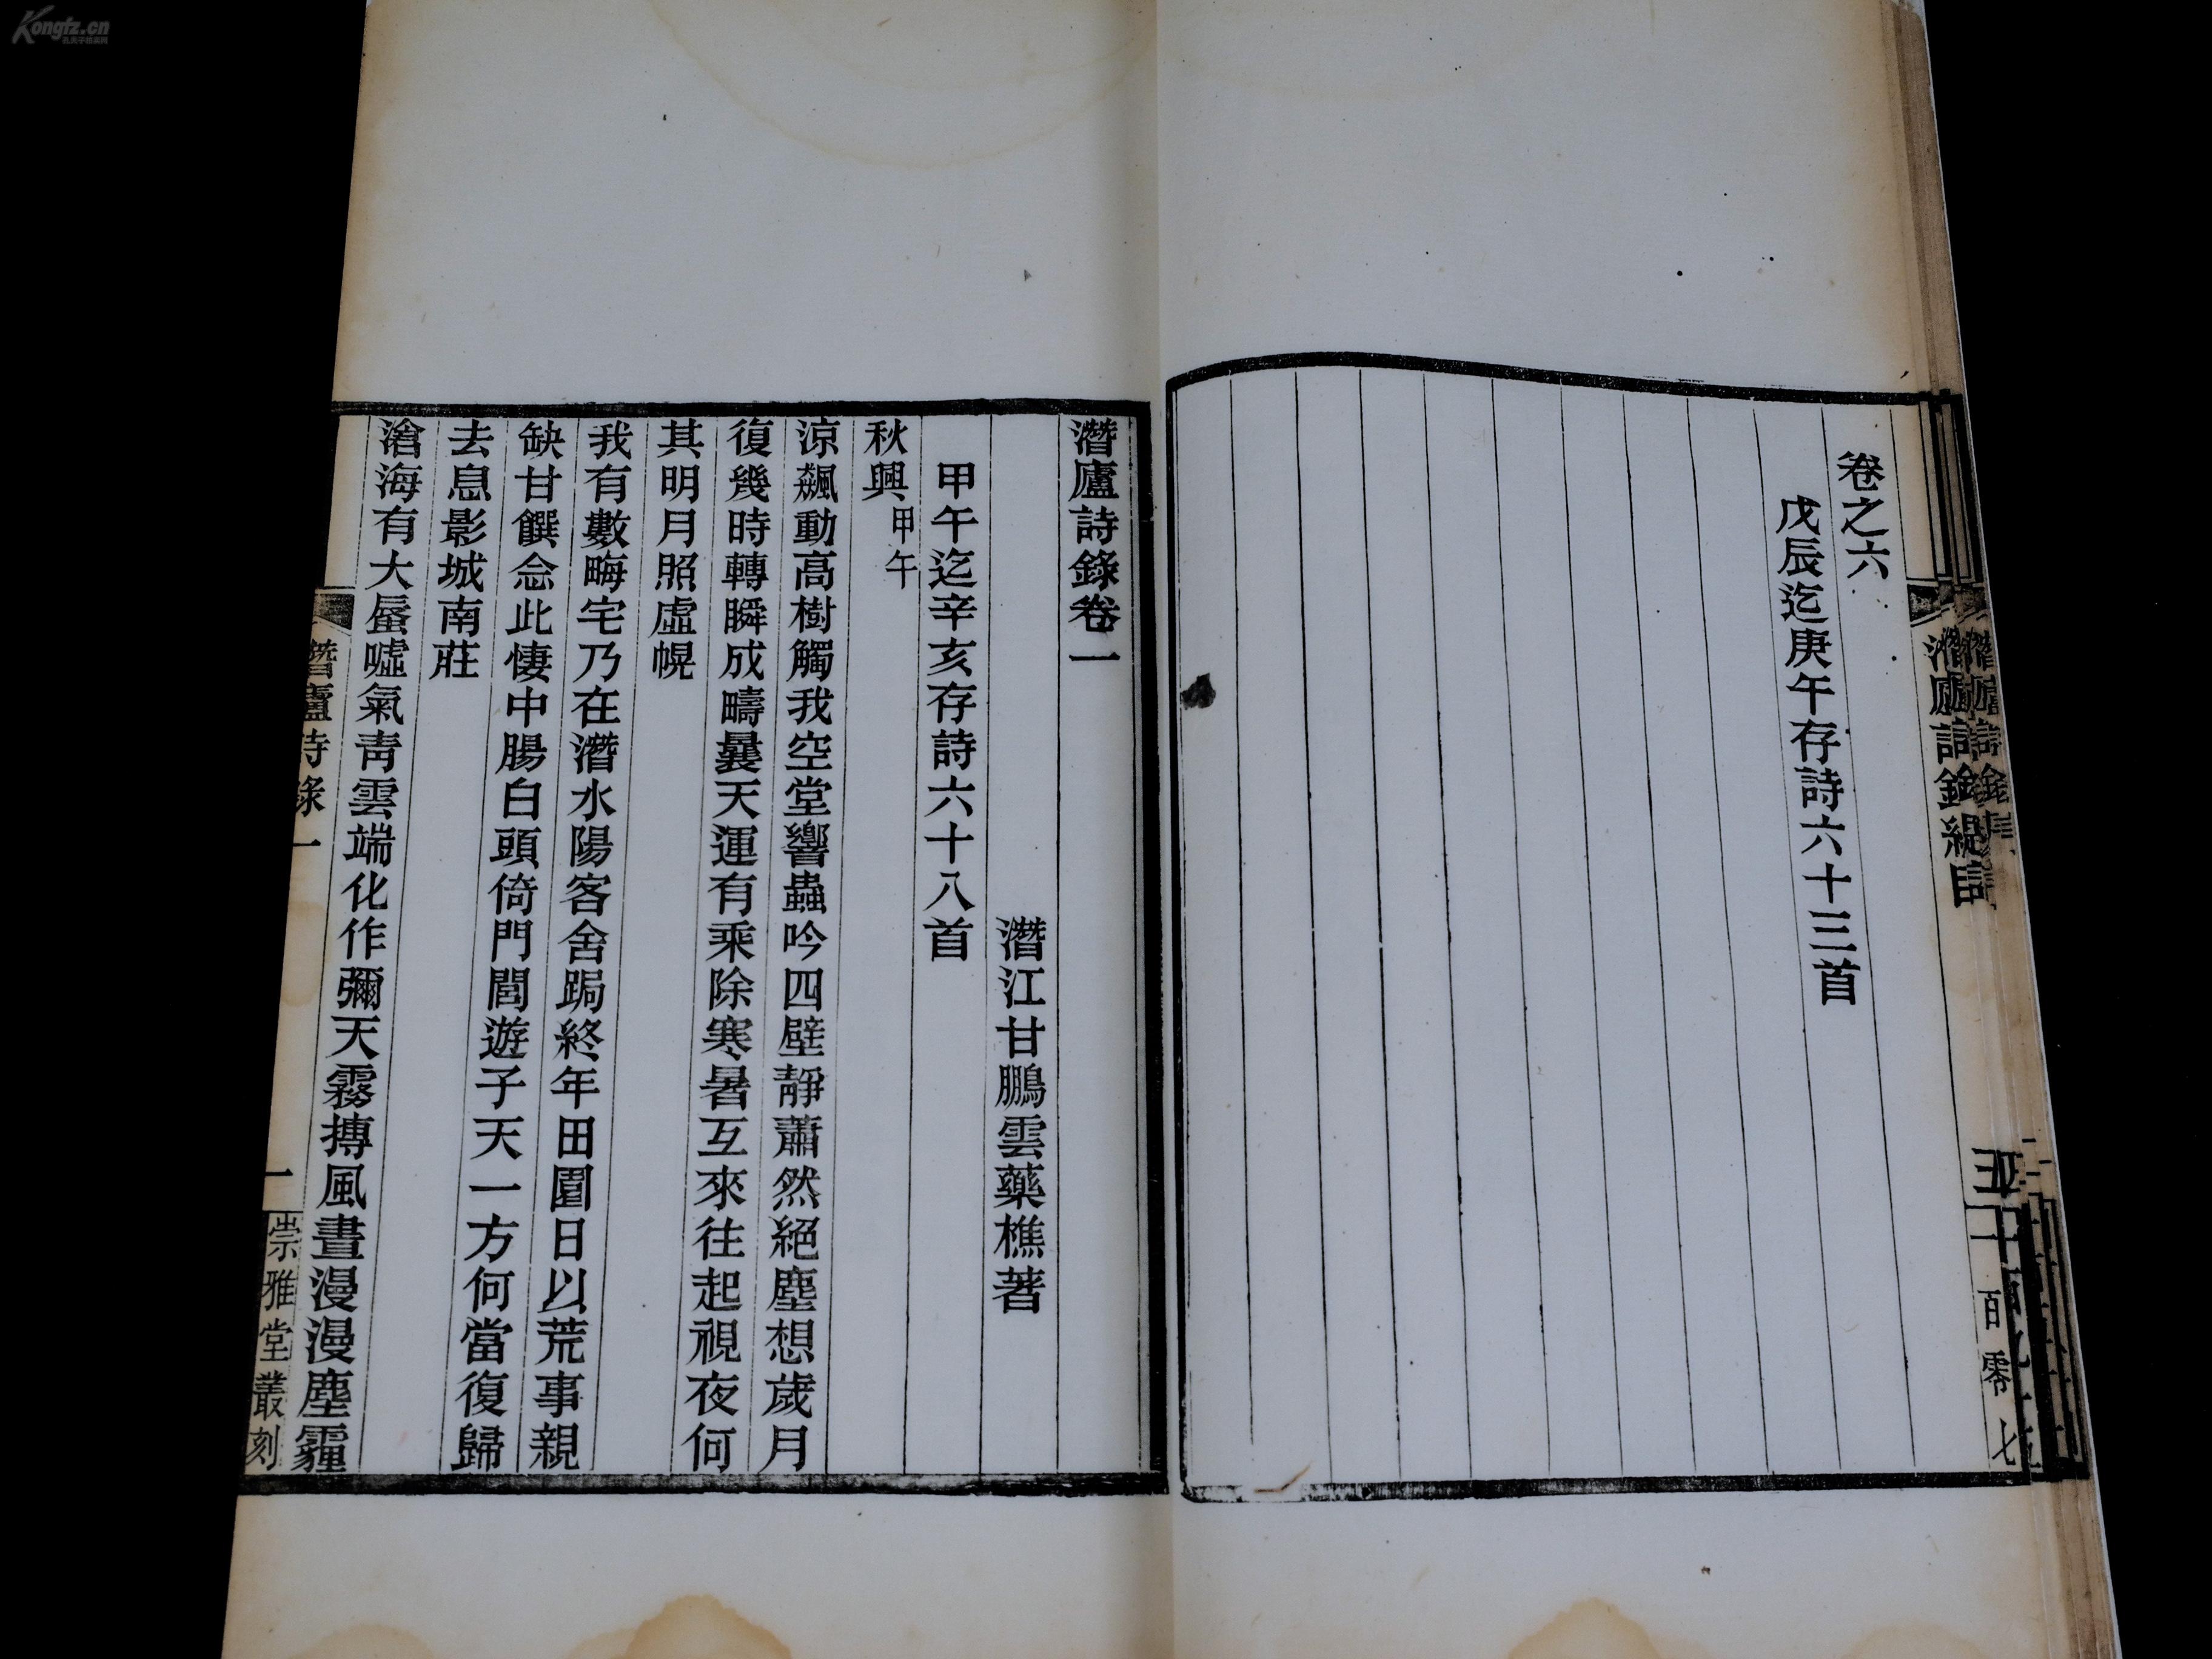 Kongfz.cn
卷之六
戊辰迄庚午存詩六十三首
百零七
潛廬詩錄卷一
潛江甘鵬雲藥樵著
甲午迄辛亥存詩六十八首
秋興甲午
涼飆動高樹觸我空堂響蟲吟四壁靜蕭然絕塵想歲月
復幾時轉瞬成疇曩天運有乘除寒暑互來往起視夜何
其明月照虛幌
我有數畮宅乃在潛水陽客舍跼終年田園日以荒事親
缺甘饌念此悽中腸白頭倚門閭遊子天一方何當復歸
去息影城南莊
滄海有大蜃噓氣靑雲端化作彌天霧摶風晝漫漫塵霾
潛廬詩錄一
一
崇雅堂叢刻